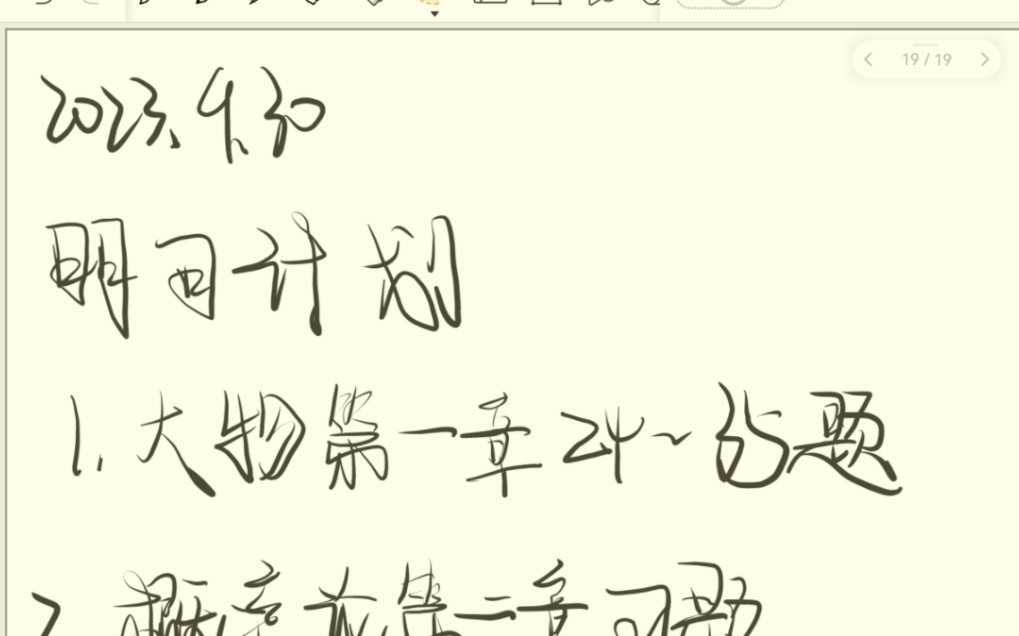 19 / 19
2023.9.30
明日计划
1.大物第一章24~35题
2.概率论第二章习题